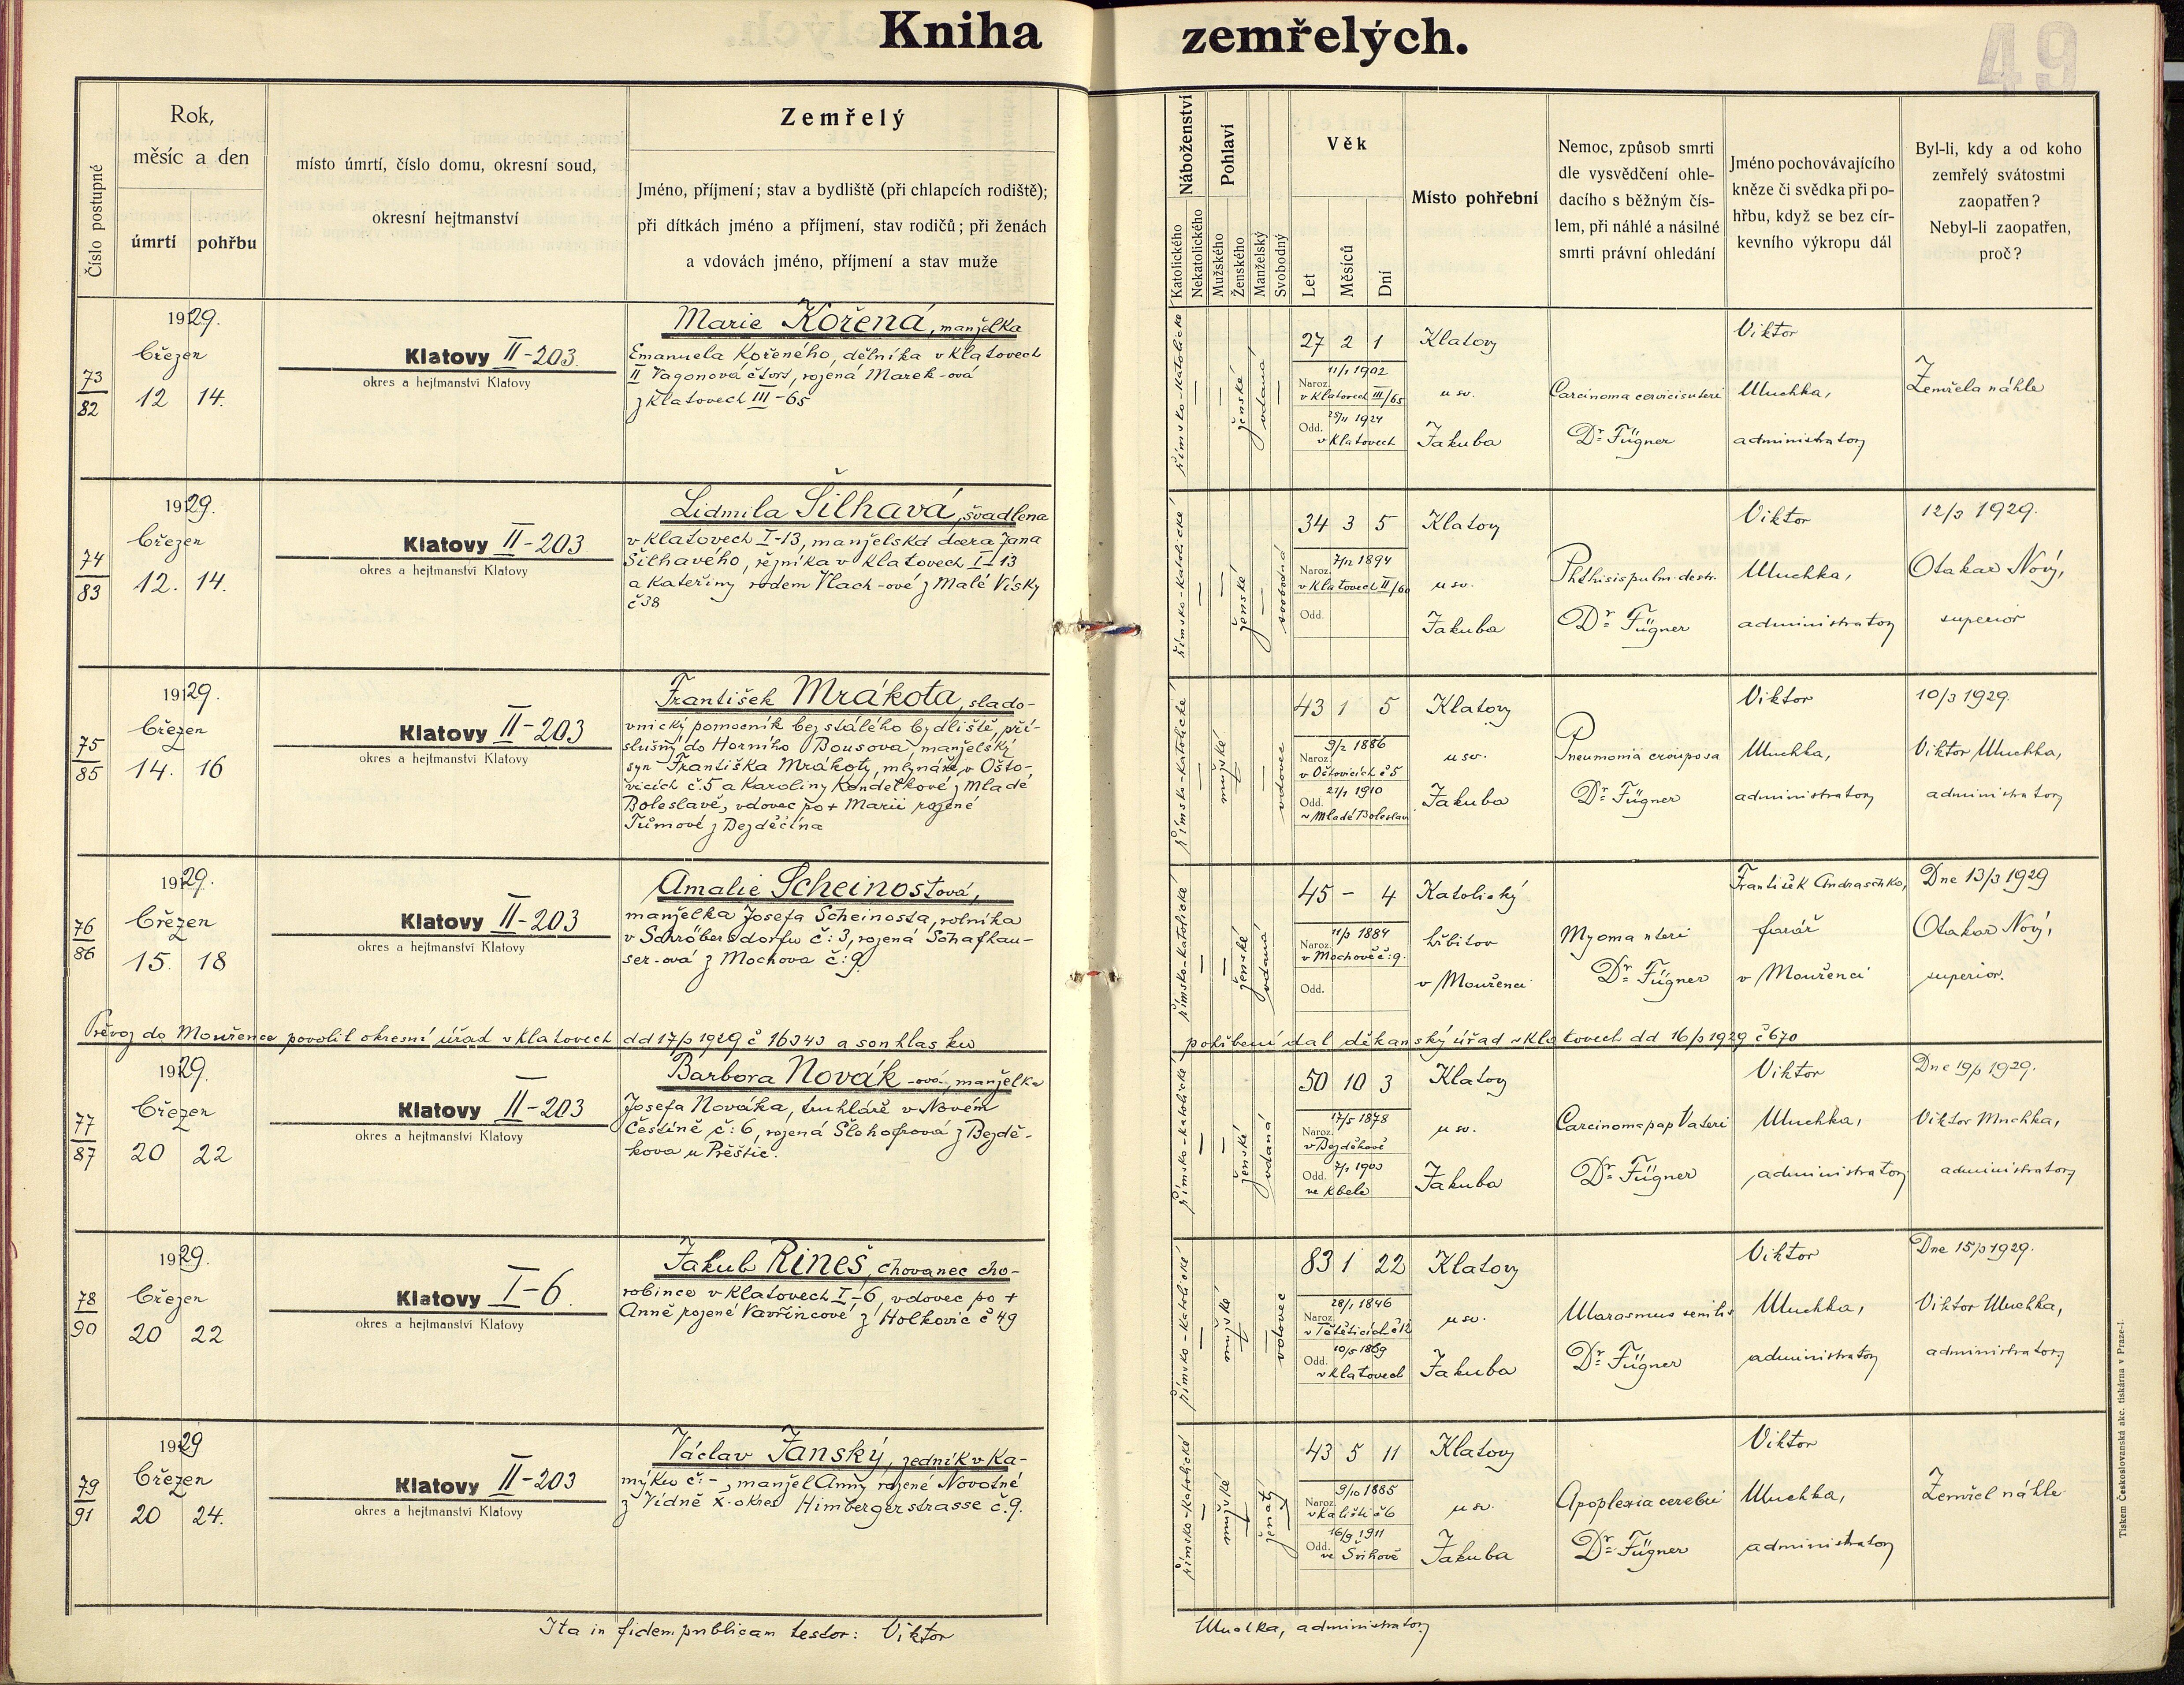 Kniha zemřelých.
49
Číslo postupné
Rok,
měsíc a den
úmrtí
pohřbu
místo úmrtí, číslo domu, okresní soud,
okresní hejtmanství
Zemřelý
Jméno, příjmení; stav a bydliště (při chlapcích rodiště);
při dítkách jméno a příjmení, stav rodičů; při ženách
a vdovách jméno, příjmení a stav muže
Náboženství
Katolického
Nekatolického
Pohlaví
Mužského
Ženského
Manželský
Svobodný
Věk
Let
Měsíců
Dní
Místo pohřební
Nemoc, způsob smrti
dle vysvědčení ohle-
dacího s běžným čís-
lem, při náhlé a násilné
smrti právní ohledání
Jméno pochovávajícího
kněze či svědka při po-
hřbu, když se bez cír-
kevního výkropu dál
Byl-li, kdy a od koho
zemřelý svátostmi
zaopatřen?
Nebyl-li zaopatřen,
proč?
73
82
1929.
březen
12 14.
Klatovy II-203.
okres a hejtmanství Klatovy
Marie Kořená, manželka
Emanuela Kořeného, dělníka v Klatovech
II Vagonová čtvrť, rozená Marek-ová
z Klatovech III-65
římsko-katolické
ženské
vdaná
27 2 1
Naroz. 11/1 1902
v Klatovech III/65
Odd. 25/11 1924
v Klatovech
Klatovy
u sv.
Jakuba
Carcinoma cervicis uteri
Dr. Fügner
Viktor
Muchka,
administrator
Zemřela náhle
74
83
1929.
březen
12. 14.
Klatovy II-203
okres a hejtmanství Klatovy
Lidmila Šilhavá, švadlena
v Klatovech I-13, manželská dcera Jana
Šilhavého, řezníka v Klatovech I-13
a Kateřiny rodem Vlach-ové z Malé Vísky
č 38
římsko-katolické
ženské
svobodná
34 3 5
Naroz. 7/12 1894
v Klatovech II/60
Odd.
Klatovy
u sv.
Jakuba
Phthisis pulm. destr.
Dr. Fügner
Viktor
Muchka,
administrator
12/3 1929.
Otakar Nový,
superior
75
85
1929.
březen
14. 16
Klatovy II-203
okres a hejtmanství Klatovy
František Mrákota, slado-
vnický pomocník bez stálého bydliště, pří-
slušný do Horního Bousova, manželský
syn Františka Mrákoty, mlynáře v Ošto-
vicích č.5 a Karoliny Kondelkové z Mladé
Boleslavě, vdovec po + Marii rozené
Tůmové z Bezděčína
římsko-katolické
mužské
vdovec
43 1 5
Naroz. 9/2 1886
v Oštovicích č 5
Odd. 21/1 1910
v Mladé Boleslavi
Klatovy
u sv.
Jakuba
Pneumonia crouposa
Dr. Fügner
Viktor
Muchka,
administrator
10/3 1929.
Viktor Muchka,
administrator
76
86
1929.
březen
15. 18
Klatovy II-203
okres a hejtmanství Klatovy
Amalie Scheinostová,
manželka Josefa Scheinosta, rolníka
v Schröbersdorfu č: 3, rozená Schafhau-
ser-ová z Mochova č: 9.
římsko-katolické
ženské
vdaná
45 – 4
Naroz. 11/3 1884
v Mochově č: 9.
Odd.
Katolický
hřbitov
v Mouřenci
Myoma uteri
Dr. Fügner
František Andraschko,
farář
v Mouřenci
Dne 13/3 1929
Otakar Nový,
superior.
Převoz do Mouřence povolil okresní úřad v Klatovech dd 17/3 1929 č 16343 a souhlas ku pohřbení dal děkanský úřad v Klatovech dd 16/3 1929 č 670
77
87
1929.
březen
20 22
Klatovy II-203
okres a hejtmanství Klatovy
Barbora Novák-ová, manželka
Josefa Nováka, truhláře v Novém
Čestíně č: 6, rozená
z Bezdě-
kova u Přeštic.
římsko-katolické
ženské
vdaná
50 10 3
Naroz. 17/5 1878
v Bezděkově
Odd. 7/1 1903
ve Kbele
Klatovy
u sv.
Jakuba
Carcinoma pap Vateri
Dr. Fügner
Viktor
Muchka,
administrator
Dne 19/3 1929.
Viktor Muchka,
administrator
78
90
1929.
březen
20 22
Klatovy I-6.
okres a hejtmanství Klatovy
Jakub Rineš, chovanec cho-
robince v Klatovech I-6, vdovec po +
Anně rozené Vavřincové z Holkovic č 49
římsko-katolické
mužské
vdovec
83 1 22
Naroz. 28/1 1846
v Tětěticích č 12
Odd. 10/5 1869
v Klatovech
Klatovy
u sv.
Jakuba
Marasmus senilis
Dr. Fügner
Viktor
Muchka,
administrator
Dne 15/3 1929.
Viktor Muchka,
administrator
79
91
1929
březen
20 24.
Klatovy II-203
okres a hejtmanství Klatovy
Václav Janský, zedník v Ka-
mýku č: -, manžel Anny rozené Novotné
z Vídně X. okres Himbergerstrasse č. 9.
římsko-katolické
mužské
ženatý
43 5 11
Naroz. 9/10 1885
v Kališti č 6
Odd. 16/9 1911
ve Švihově
Klatovy
u sv.
Jakuba
Apoplexia cerebri
Dr. Fügner
Viktor
Muchka,
administrator
Zemřel náhle
Ita in fidem publicam testor: Viktor Muchka, administrator
Tiskem Československá akc. tiskárna v Praze-I.